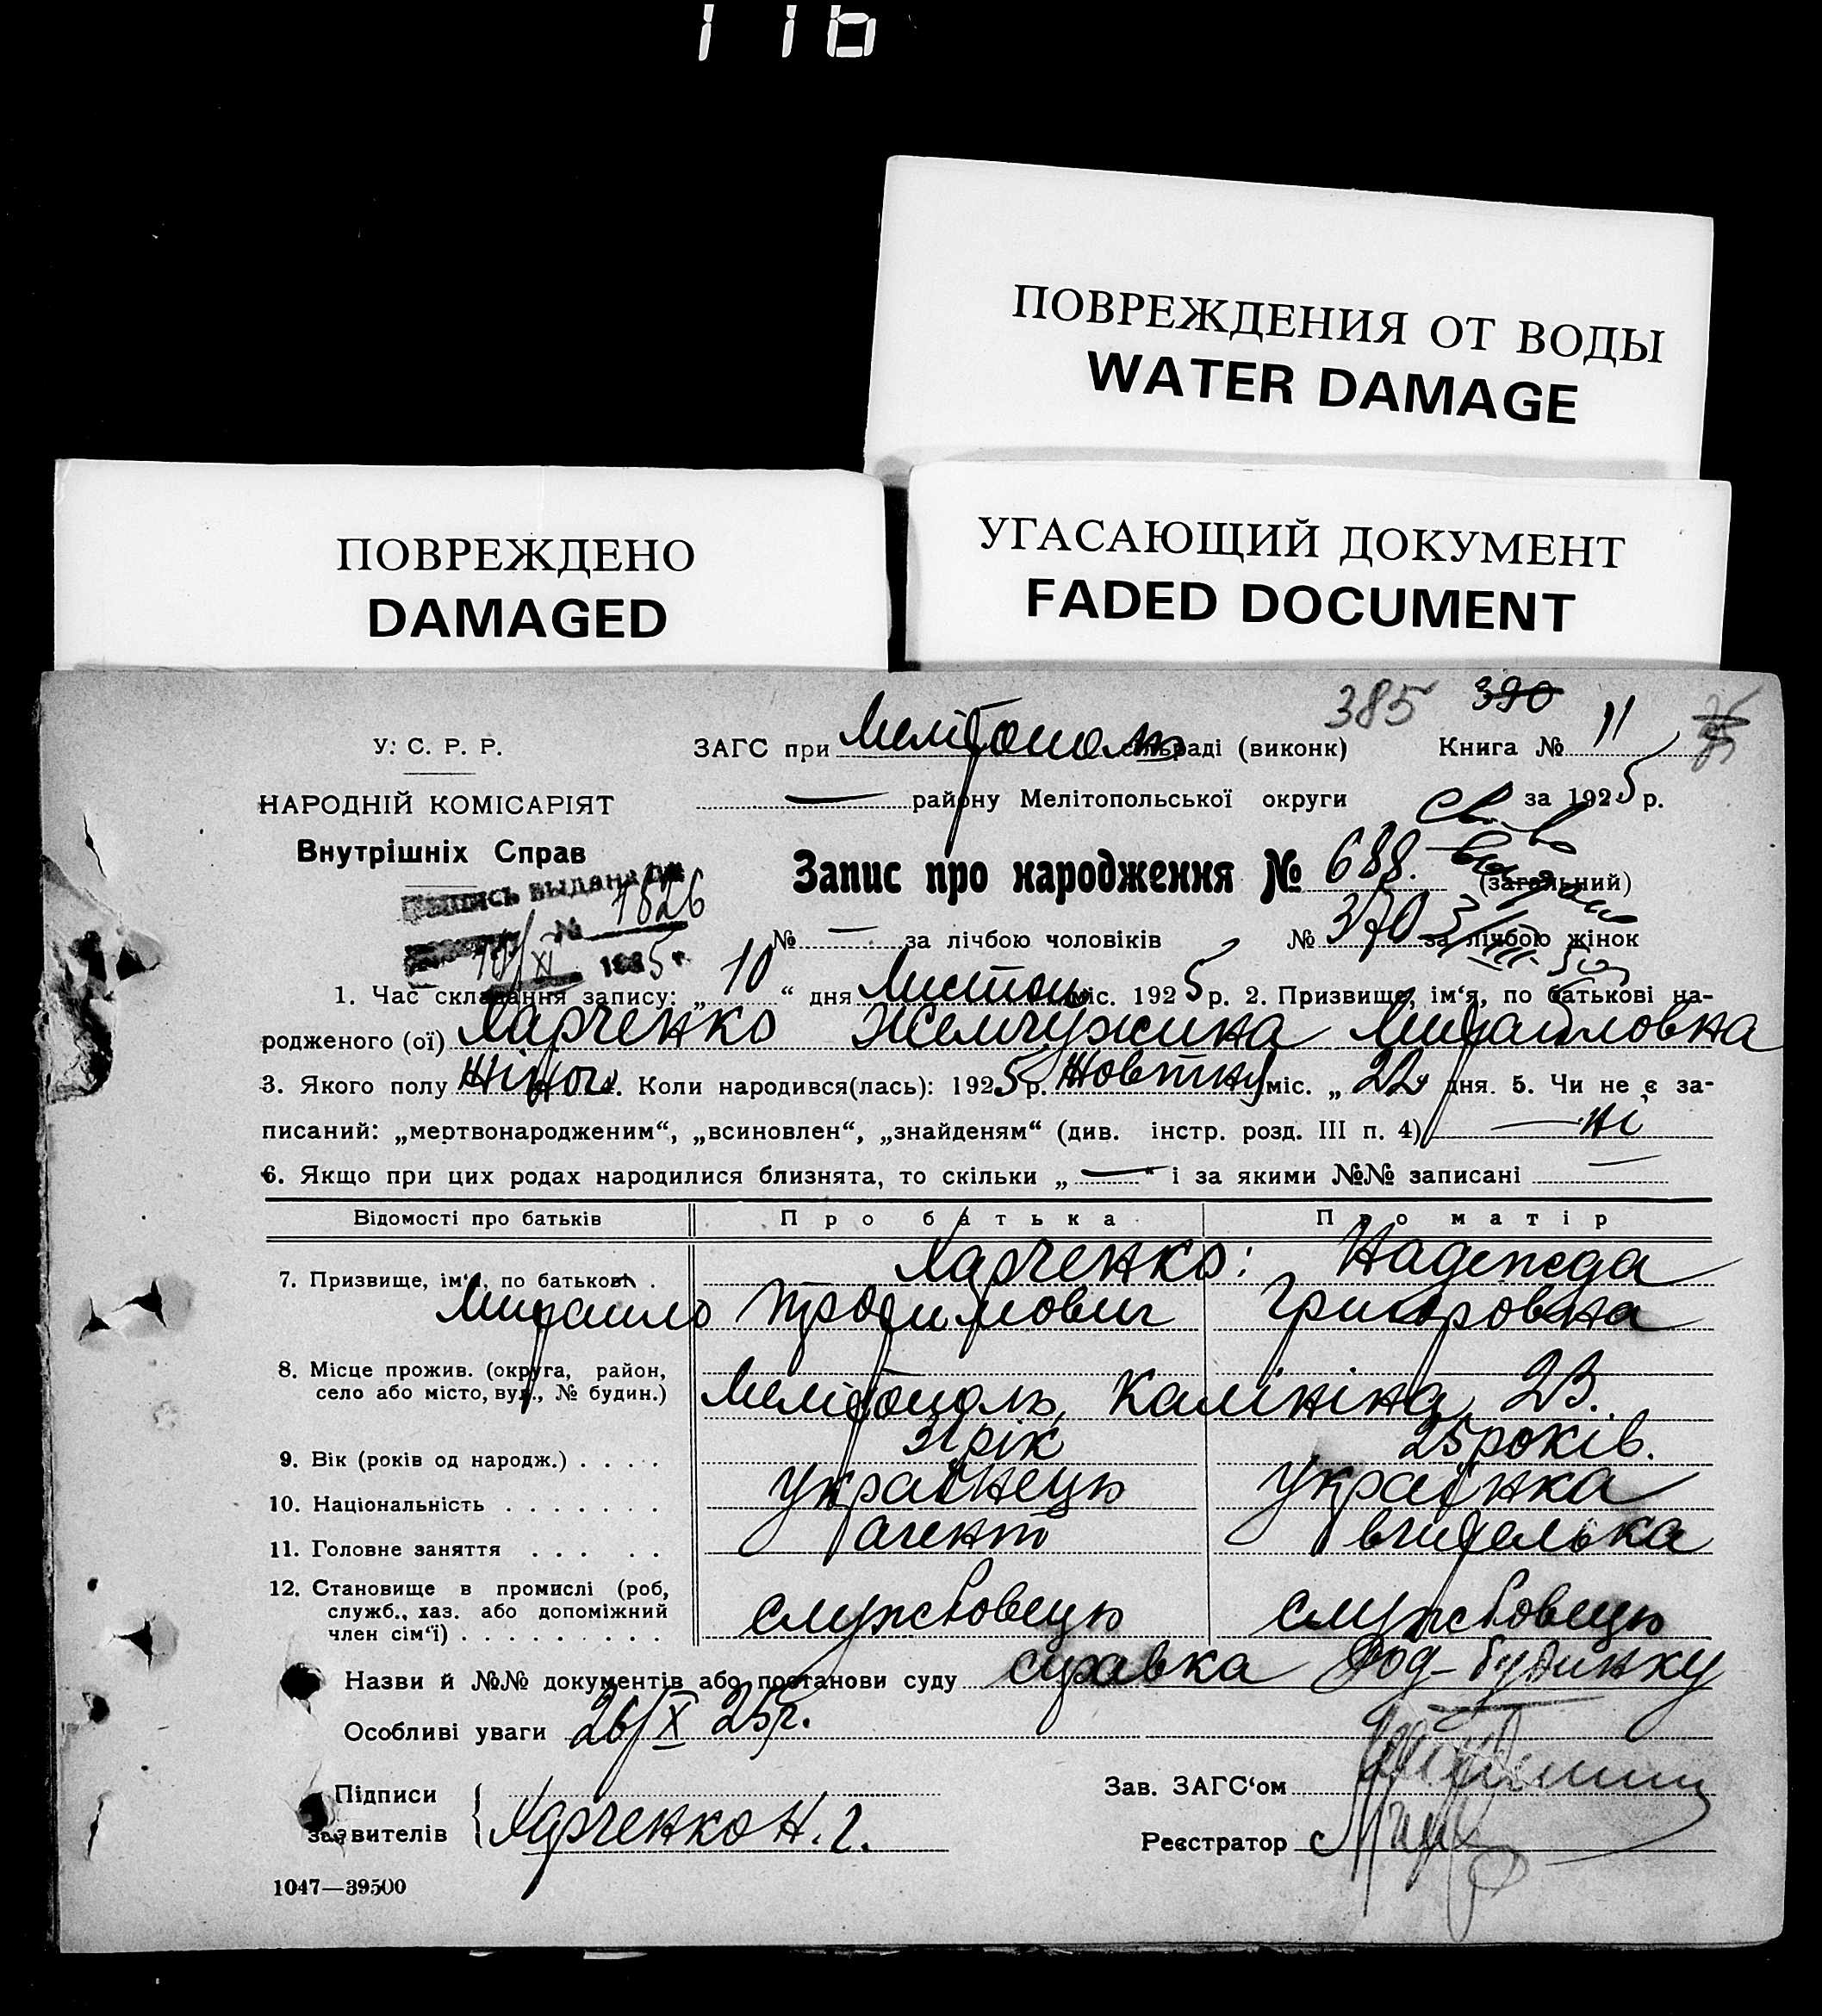 116
ПОВРЕЖДЕНИЯ ОТ ВОДЫ
WATER DAMAGE
ПОВРЕЖДЕНО
DAMAGED
УГАСАЮЩИЙ ДОКУМЕНТ
FADED DOCUMENT
385 390
У. С. Р. Р.
ЗАГС при Мелітополь сільраді (виконк) Книга № 11
НАРОДНІЙ КОМІСАРІЯТ
— району Мелітопольської округи за 1925 р.
Внутрішніх Справ
Запис про народження № 688. (загальний)
выдана
№ 1826
10/XI 1925 г.
№ — за лічбою чоловіків № 370 за лічбою жінок
1. Час складання запису: „10“ дня Листоп міс. 1925 р. 2. Призвище, ім‘я, по батькові на-
родженого (ої) Харченко Жемчужина Михайловна
3. Якого полу жіноч. 4. Коли народився(лась): 1925 р. Жовтня міс. „22 дня. 5. Чи не є за-
писаний: „мертвонародженим“, „всиновлен“, „знайденям“ (див. інстр. розд. III п. 4) — ні
6. Якщо при цих родах народилися близнята, то скільки „—“ і за якими №№ записані —
Відомості про батьків Про батька Про матір
7. Призвище, ім‘я, по батькові . Харченко: Надежда
Михайло Трофимович Григоровна
8. Місце прожив. (округа, район,
село або місто, вул., № будин.) Мелітополь, Калініна 23.
9. Вік (років од народж.) . . . . 31 рік 25 років.
10. Національність . . . . . . . українець українка
11. Головне заняття . . . . . агент вчителька
12. Становище в промислі (роб,
служб., хаз. або допоміжний
член сім‘ї) . . . . . . . . . службовець службовець
Назви й №№ документів або постанови суду справка Род-будинку
Особливі уваги 26/X 25 г.
Підписи
заявителів Харченко Н. Г.
Зав. ЗАГС‘ом
Реєстратор
1047—39500